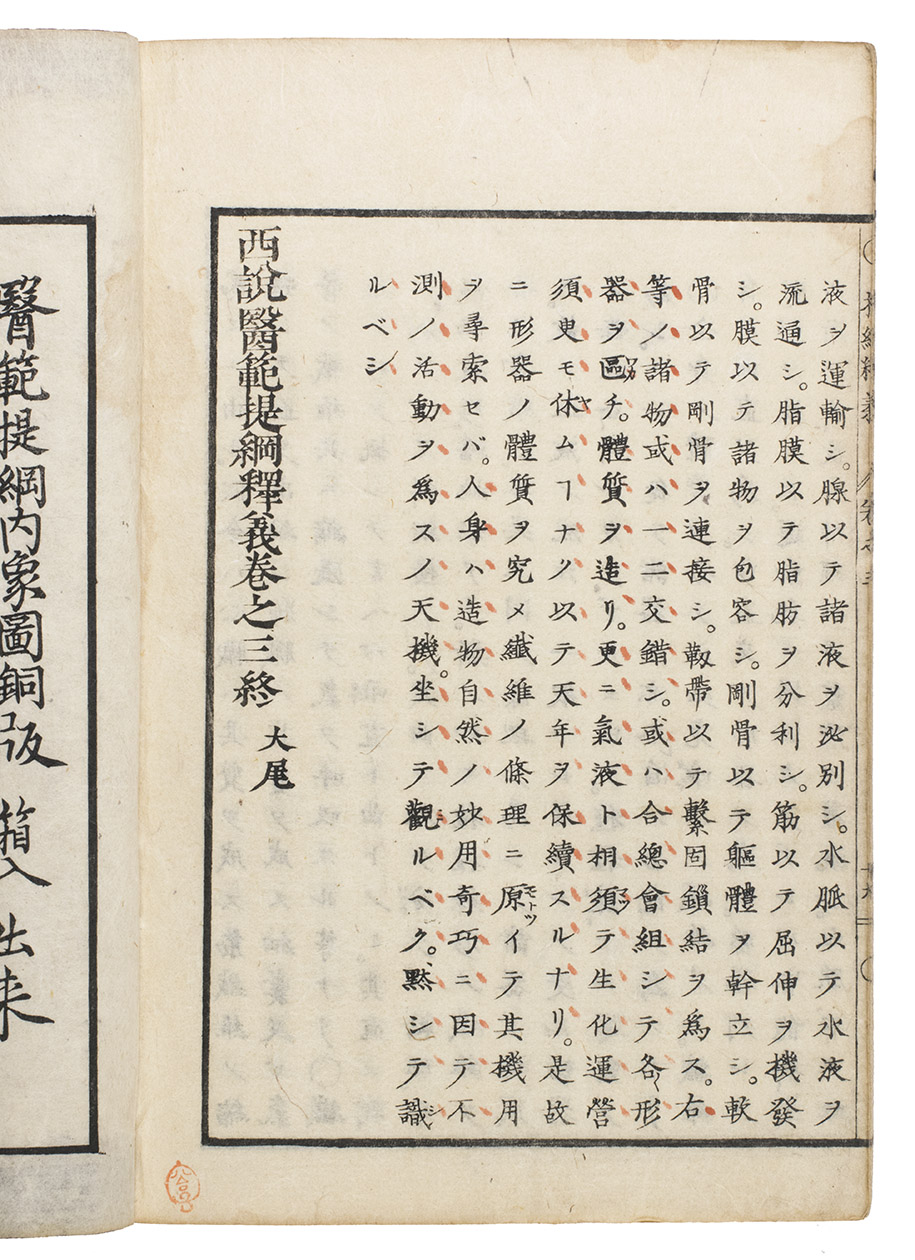 液ヲ運輸シ。腺以テ諸液ヲ泌別シ。水脈以テ水液ヲ
流通シ。脂膜以テ脂肪ヲ分利シ。筋以テ屈伸ヲ機發
シ。膜以テ諸物ヲ包容シ。剛骨以テ軀體ヲ幹立シ。軟
骨以テ剛骨ヲ連接シ。靱帶以テ繫固鎖結ヲ爲ス。右
等ノ諸物或ハ一二交錯シ。或ハ合總會組シテ各形
器ヲ區チ。體質ヲ造リ。更ニ氣液ト相須テ生化運營
須臾モ休ムヿナク以テ天年ヲ保續スルナリ。是故
ニ形器ノ體質ヲ究メ纖維ノ條理ニ原イテ其機用
ヲ尋索セバ。人身ハ造物自然ノ妙用奇巧ニ因テ不
測ノ活動ヲ爲スノ天機。坐シテ觀ルベク。黙シテ識
ルベシ
西說醫範提綱釋義卷之三終 大尾
醫範提綱内象圖銅版 箱入 出来